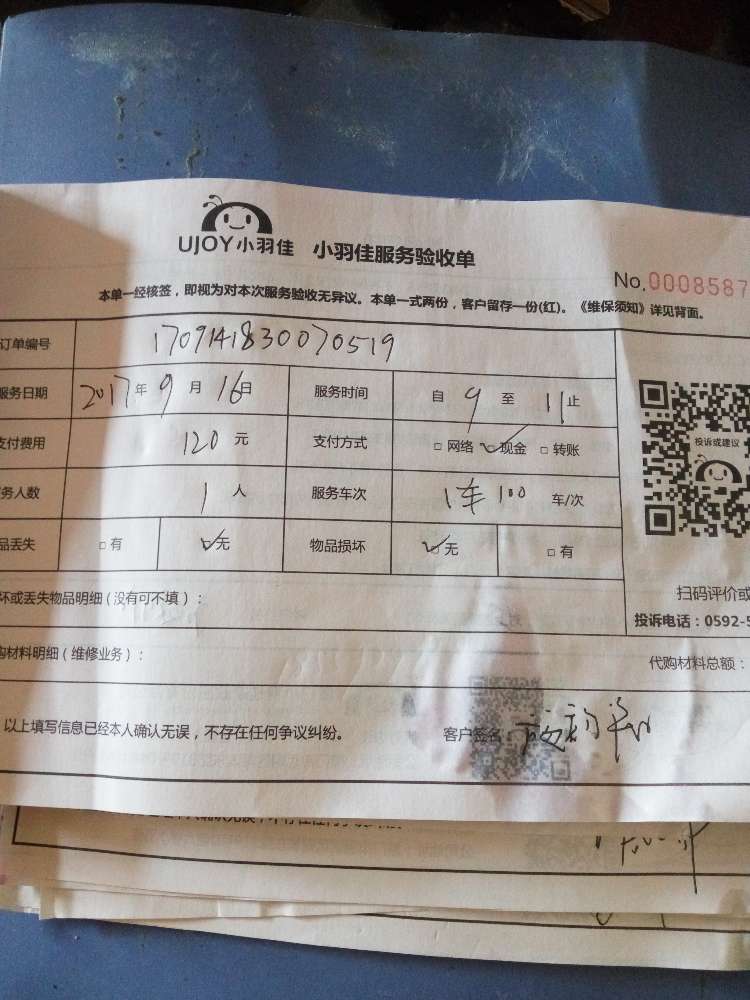 UJOY小羽佳 小羽佳服务验收单
No.0008587
本单一经核签，即视为对本次服务验收无异议。本单一式两份，客户留存一份(红)。《维保须知》详见背面。
订单编号 170914183007​0519
服务日期 2017年9月16日 服务时间 自9至11止
支付费用 120元 支付方式 □网络 ☑现金 □转账
务人数 1人 服务车次 1车100 车/次
品丢失 □有 ☑无 物品损坏 ☑无 □有
投诉或建议
扫码评价或
投诉电话：0592-5
坏或丢失物品明细（没有可不填）：
购材料明细（维修业务）： 代购材料总额：
以上填写信息已经本人确认无误，不存在任何争议纠纷。 客户签名：